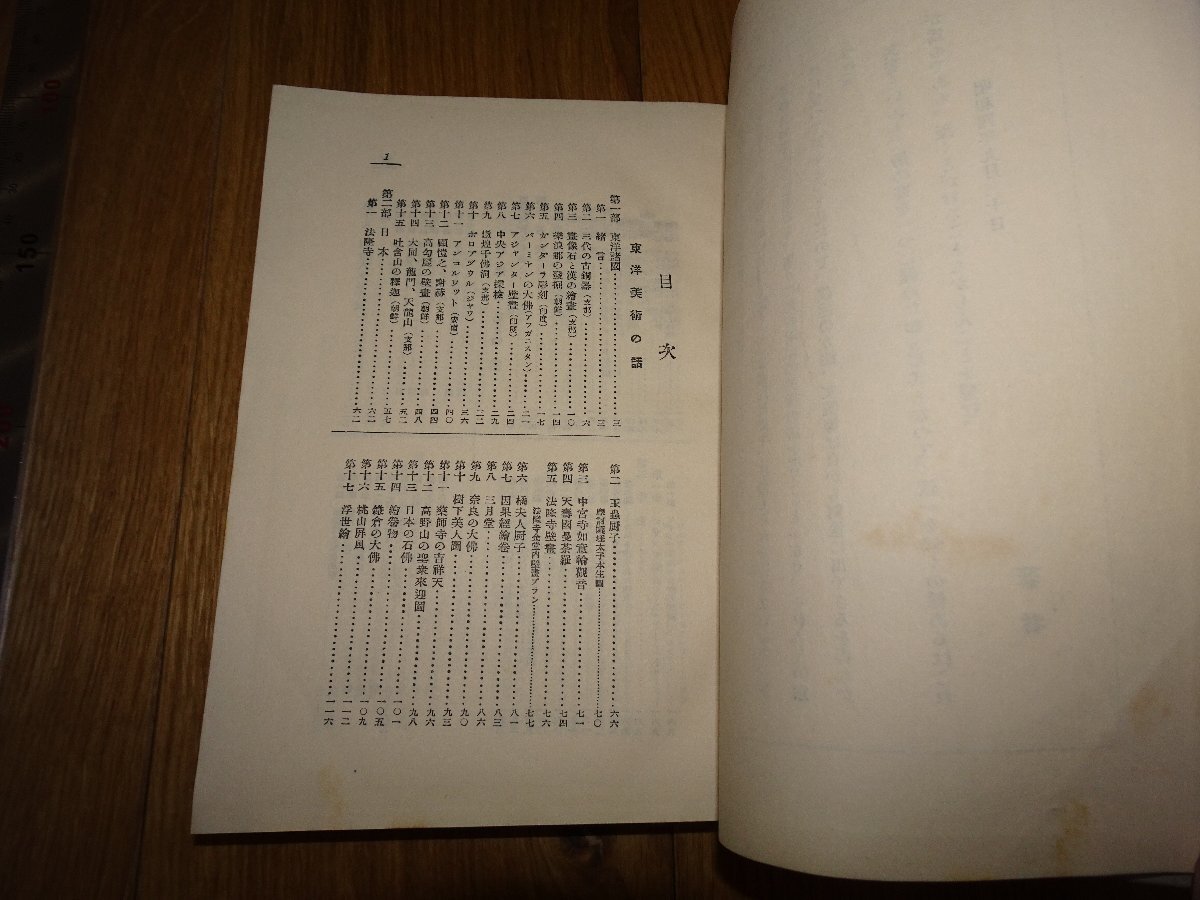 目次
東洋美術の話
第一部 東洋諸國……三
第一 緒言……三
第二 三代の古銅器(支那)……六
第三 畫像石と漢の繪畫(支那)……一〇
第四 樂浪郡の發掘(朝鮮)……一四
第五 ガンダーラ彫刻(印度)……一七
第六 バーミヤンの大佛(アフガニスタン)……二一
第七 アジャンター壁畫(印度)……二四
第八 中央アジア探檢……二九
第九 燉煌千佛洞(支那)……三三
第十 ボロブヅウル(ジヤワ)……三六
第十一 アンコルワット(安南)……四〇
第十二 顧愷之、謝赫(支那)……四四
第十三 高勾麗の壁畫(朝鮮)……四八
第十四 大同、龍門、天龍山(支那)……五二
第十五 吐含山の釋迦(朝鮮)……五七
第二部 日本……六二
第一 法隆寺……六二
第二 玉蟲厨子……六六
摩訶薩埵太子本生圖……七〇
第三 中宮寺如意輪觀音……七一
第四 天壽國曼荼羅……七四
第五 法隆寺壁畫……七六
法隆寺金堂内壁畫プラン……七七
第六 橘夫人厨子……八一
第七 因果經繪卷……八三
第八 三月堂……八六
第九 奈良の大佛……九〇
第十 樹下美人圖……九三
第十一 藥師寺の吉祥天……九六
第十二 高野山の聖衆來迎圖……九八
第十三 日本の石佛……一〇一
第十四 繪卷物……一〇五
第十五 鎌倉の大佛……一〇九
第十六 桃山屏風……一一二
第十七 浮世繪……一一六
1
100
150
200